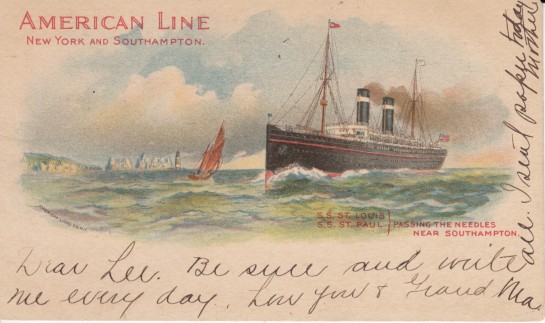 AMERICAN LINE
NEW YORK AND SOUTHAMPTON.
S.S. ST. LOUIS
S.S. ST. PAUL
PASSING THE NEEDLES
NEAR SOUTHAMPTON.
Dear Lee. Be sure and write
me every day. Love you & Grand Ma
all. I sent paper today
Mother